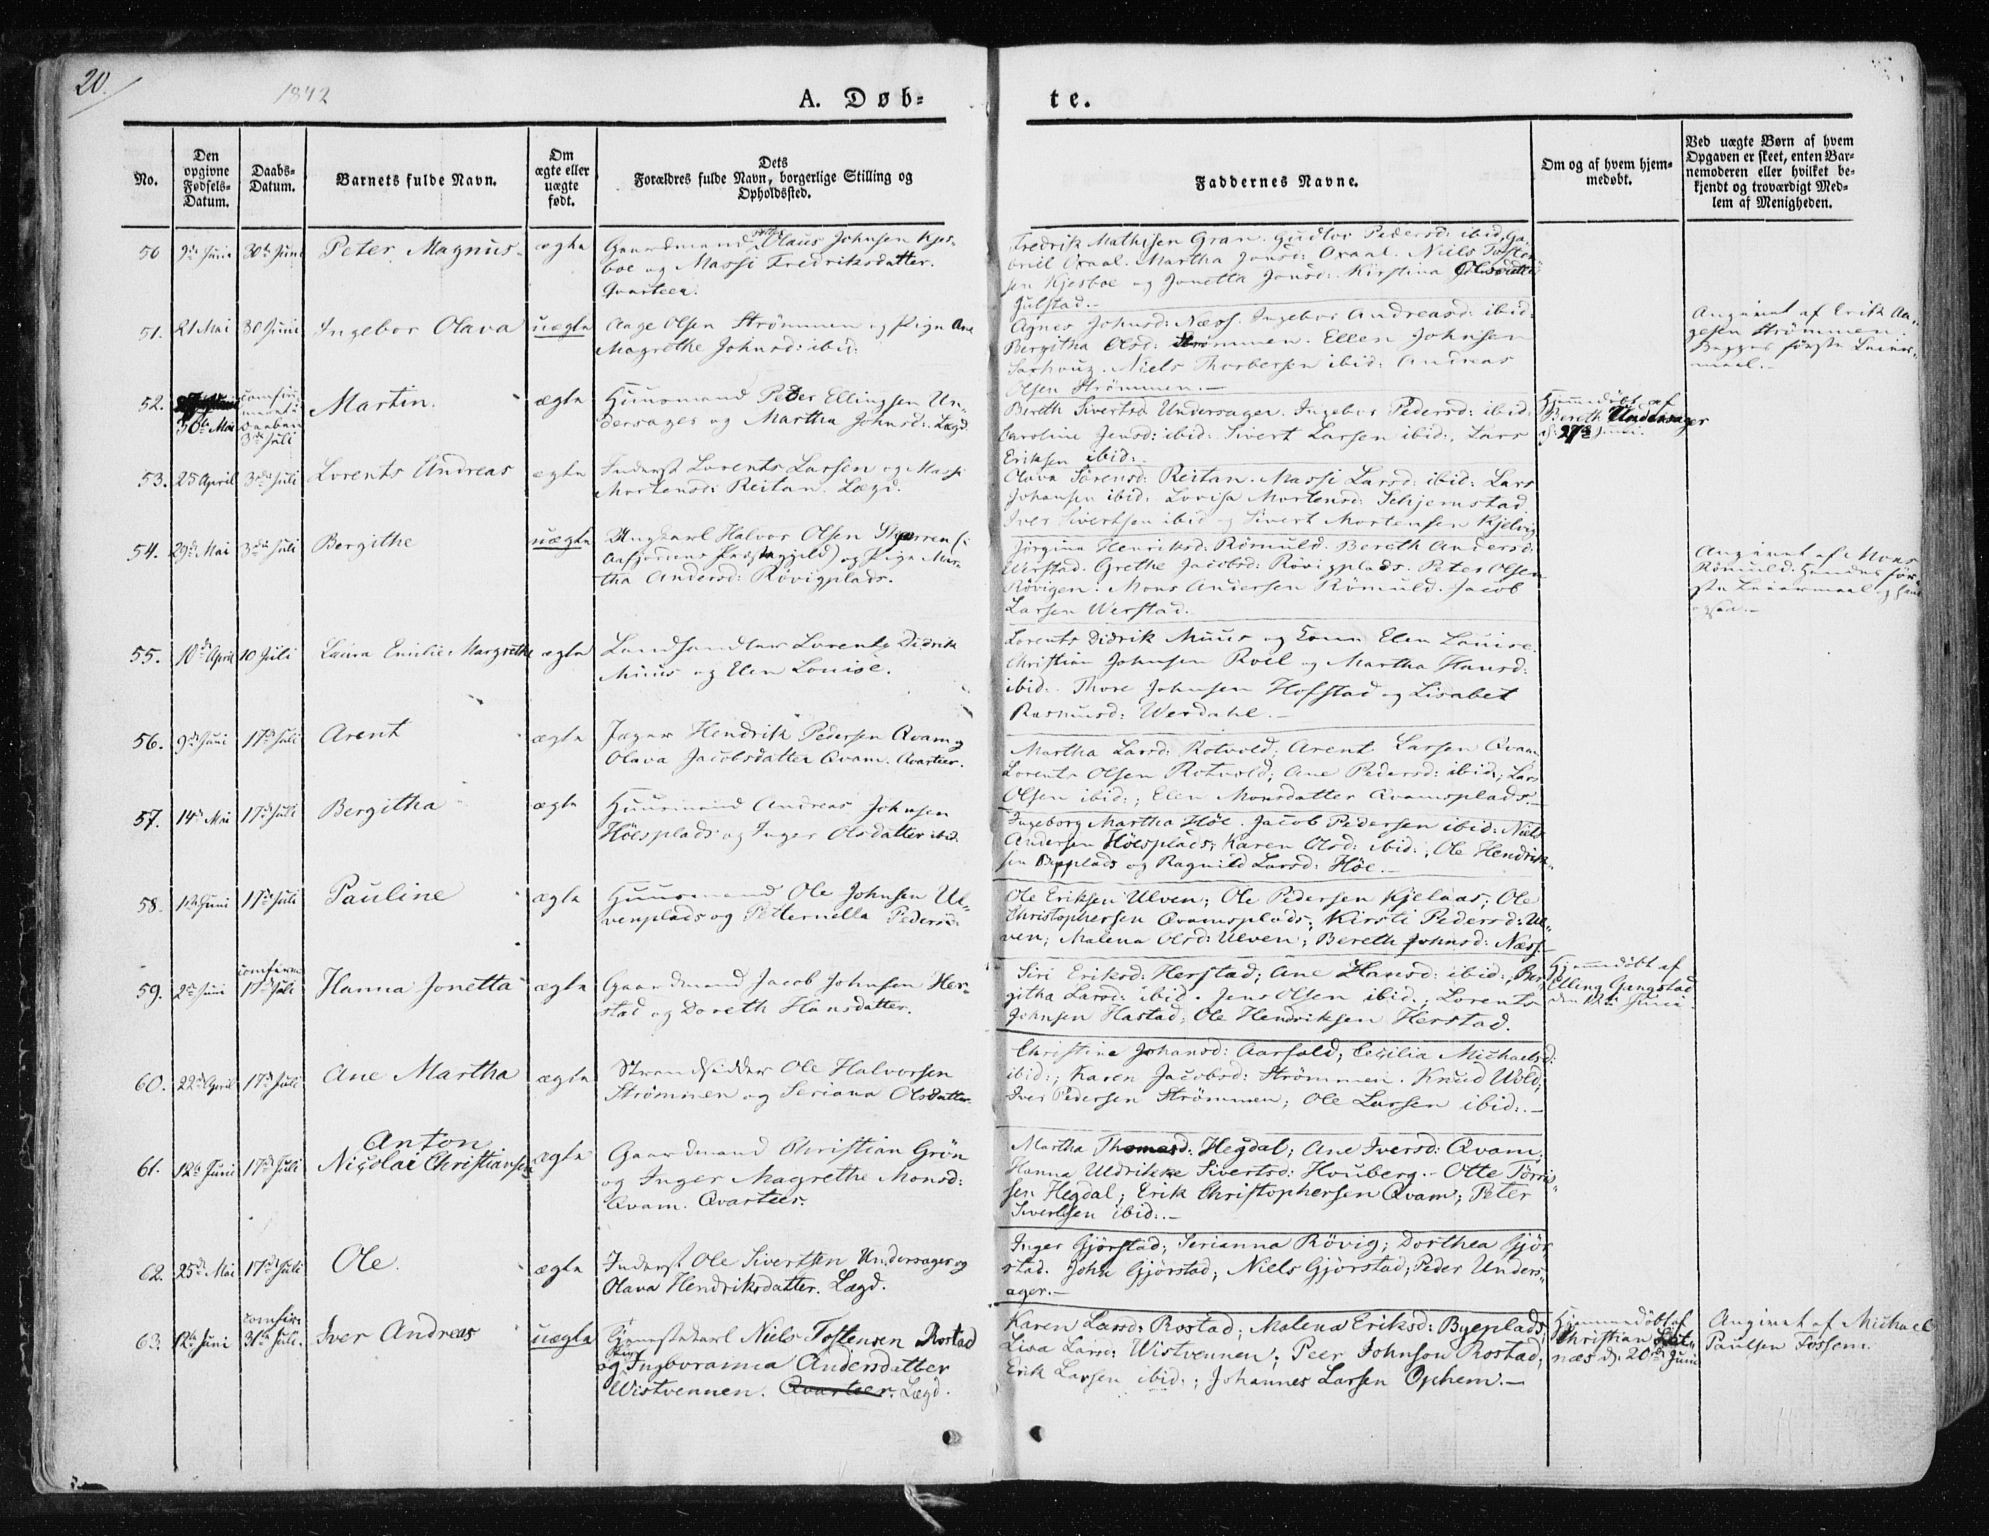 20.
1842
A. Døb-
te.
No.
Den opgivne Fødsels-Datum.
Daabs-Datum.
Barnets fulde Navn.
Om ægte eller uægte født.
Dets
Forældres fulde Navn, borgerlige Stilling og
Opholdssted.
Faddernes Navne.
Om og af hvem hjem-
medøbt.
Ved uægte Børn af hvem
Opgaven er skeet, enten Bar-
nemoderen eller hvilket be-
kjendt og troværdigt Med-
lem af Menigheden.
50 9de Juni 30te Juni Peter Magnus ægte Gaardmand Olaus Johnsen Kjes-
boe og Massi Fredriksdatter.
Qvarteer.
Fredrik Mathisen Gran. Gudlov Pedersd: ibid, Ga-
briel Oxaal. Martha Jonsd: Oxaal. Niels Tosten-
sen Kjesboe og Jonetta Jonsd: Kirstina
Julstad.
51. 21 Mai 30 Juni Ingebor Olava uægte Aage Olsen Strømmen og Pige Ane
Magrethe Johnsd: ibid:
Agnes Johnsd: Næss. Ingebor Andreasd: ibid:
Bergitha Olsd: Strømmen. Ellen Johnsen
Niels Thorbersen ibid: Andreas
Olsen Strømmen.
Angivet af Erik Aa-
gesen Strømmen.
Begges første Leier-
maal.
52. 30te Mai 3die Juli Martin. ægte Huusmand Peder Ellingsen Un-
dersager og Martha Johnsd: Lægd
Bereth Sivertsd Undersager. Ingebor Pedersd: ibid:
Caroline Jensd: ibid: Sivert Larsen ibid:, Lars
Eriksen ibid:
Hjemmedøbt af
Bereth Undersager
53. 25 April 3die Juli Lorents Andreas ægte Inderst Lorents Larsen og Massi
Mortensd: Reitan. Lægd.
Olava Sørensd: Reitan. Massi Larsd: ibid: Lars
Johansen ibid: Lovisa Mortensd: Schjemstad
Iver Sivertsen ibid og Sivert Mortensen Kjelvig
54. 29de Mai 3die Juli Bergithe uægte Ungkarl Halvor Olsen
Aafjordens Præstegjeld) og Pige Mar-
tha Andersd: Røvigplads.
Jørgina Henriksd: Rømuld. Bereth Andersd:
Werstad. Grethe Jacobsd: Røvigplads. Peter Olsen
Røvigen. Mons Andersen Rømuld. Jacob
Larsen Werstad.
Angivet af Mons
Rømuld. Hendes før-
ste Leiermaal og hans
ogsaa.
55. 10de April 10 Juli Laura Emilie Margrethe ægte Landhandler Lorents Didrik
Muus og Elen Louise.
Lorents Didrik Muus og Kone Elen Louise.
Christian Johnsen Roel og Martha Hansd:
ibid:. Thore Johnsen Hofstad og Lisabet
Rasmusd: Werdahl.
56. 9de Juni 17de Juli Arent ægte Jæger Hendrik Pedersen Qvam og
Olava Jacobsdatter Qvam. Qvarteer.
Martha Larsd: Rotvold; Arent Larsen Qvam
Lorents Olsen Rotvold; Ane Pedersd: ibid:, Lars
Olsen ibid:; Elen Monsdatter Qvamsplads.
57. 14de Mai 17de Juli Bergitha ægte Huusmand Andreas Johnsen
Høesplads og Inger Olsdatter ibid.
Ingeborg Martha Høe. Jacob Pedersen ibid: Niels
Andersen Høesplads; Karen Olsd: ibid:, Ole Hendrik-
sen Byeplads og Ragnild Larsd: Høe.
58. Juni 17de Juli Pauline ægte Huusmand Ole Johnsen Ul-
venplads og Petternella Pedersd:
Ole Eriksen Ulven; Ole Pedersen Kjelaas; Ole
Christophersen Qvamsplads; Kirsti Pedersd: Ul-
ven; Malena Olsd: Ulven; Bereth Johnsd: Næss.
59. 2de Juni 17de Juli Hanna Jonetta ægte Gaardmand Jacob Johnsen Her-
stad og Doreth Hansdatter.
Siri Eriksd: Herstad; Ane Hansd: ibid:, Ber-
githa Larsd: ibid. Jens Olsen ibid:; Lorents
Johnsen Hastad; Ole Hendriksen Herstad.
Hjemmedøbt af
Elling Gangstad
den 12te Juni.
60. 22de April 17de Juli Ane Martha ægte Strandsidder Ole Halvorsen
Strømmen og Seriana Olsdatter
Christine Johansd: Aarfald; Cecilia Michaelsd:
ibid:; Karen Jacobsd: Strømmen. Knud Wold;
Iver Pedersen Strømmen; Ole Larsen ibid:.
61. 12te Juni 17de Juli Anton
Nicolai Christiansen ægte Gaardmand Christian Grøn
og Inger Magrethe Monsd:
Qvam. Qvarteer.
Martha Thomasd: Hegdal; Ane Iversd: Qvam;
Hanna Uldrikke Sivertsd: Houberg. Otte Tørri-
sen Hegdal; Erik Christophersen Qvam; Peter
Sivertsen ibid:.
62. 25de Mai 17de Juli Ole. ægte Inderst Ole Sivertsen Undersager og
Olava Hendriksdatter. Lægd.
Inger Gjørstad; Serianna Røvig; Dorthea Gjør-
stad. John Gjørstad; Niels Gjørstad; Peder Unders-
ager.
63. 12te Juni 31te Juli Iver Andreas uægte Tjenestekarl Niels Tostensen Rostad
og Pige Ingboranna Andersdatter
Wistvennen. Qvarteer. Lægd.
Karen Larsd: Rostad; Malena Eriksd: Byeplads;
Lisa Larsd: Wistvennen; Peer Johnson Rostad;
Erik Larsen ibid:; Johannes Larsen Ophem.
Hjemmedøbt af
Christian
næs d. 20de Juni
Angivet af Michael
Paulsen Fossem.